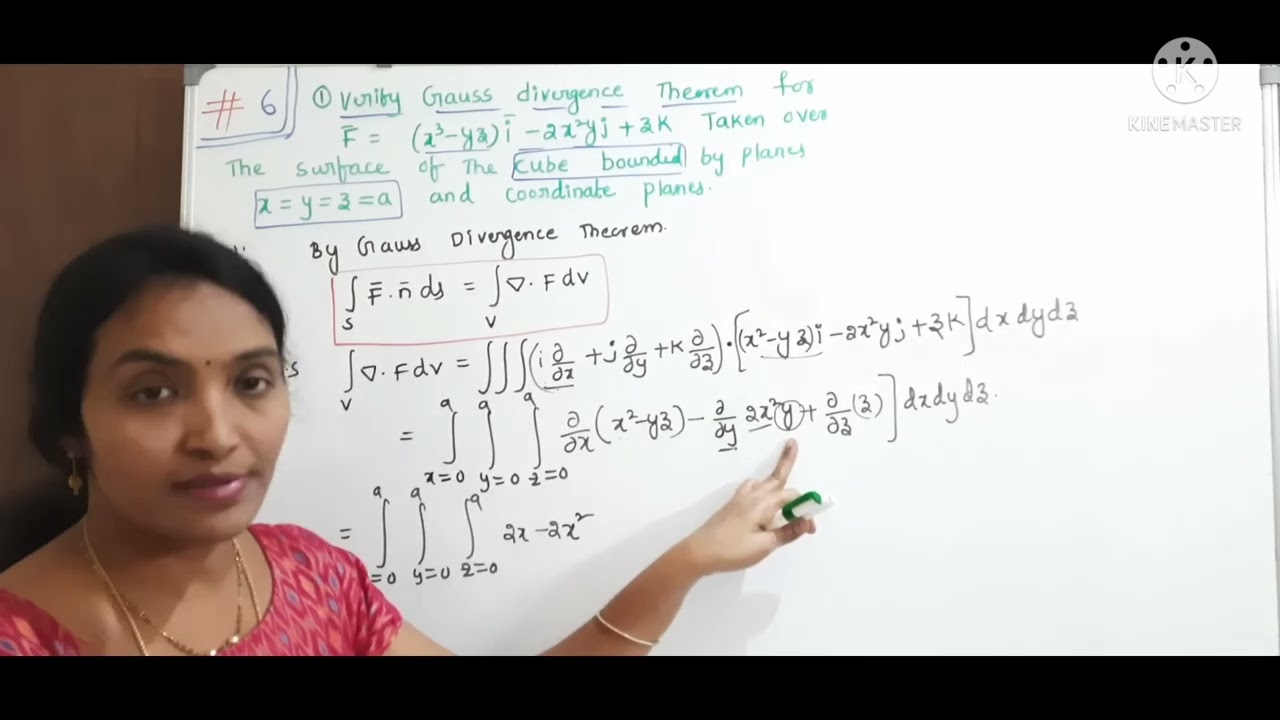 KINEMASTER
# 6 ① Verify Gauss divergence Theorem for
F̄ = (x³-yz)ī - 2x²yj + zk Taken over
The surface of The cube bounded by planes
x = y = z = a and coordinate planes.
By Gauss Divergence Theorem.
∫S F̄.n̄ ds = ∫V ∇. F dv
∫V ∇. F dv = ∫∫∫ (i ∂/∂x + j ∂/∂y + k ∂/∂z) · [(x²-yz)i - 2x²yj + zk] dx dy dz
= ∫x=0^a ∫y=0^a ∫z=0^a ∂/∂x (x²-yz) - ∂/∂y 2x²y + ∂/∂z (z)] dx dy dz.
= ∫=0^a ∫y=0^a ∫z=0^a 2x - 2x²